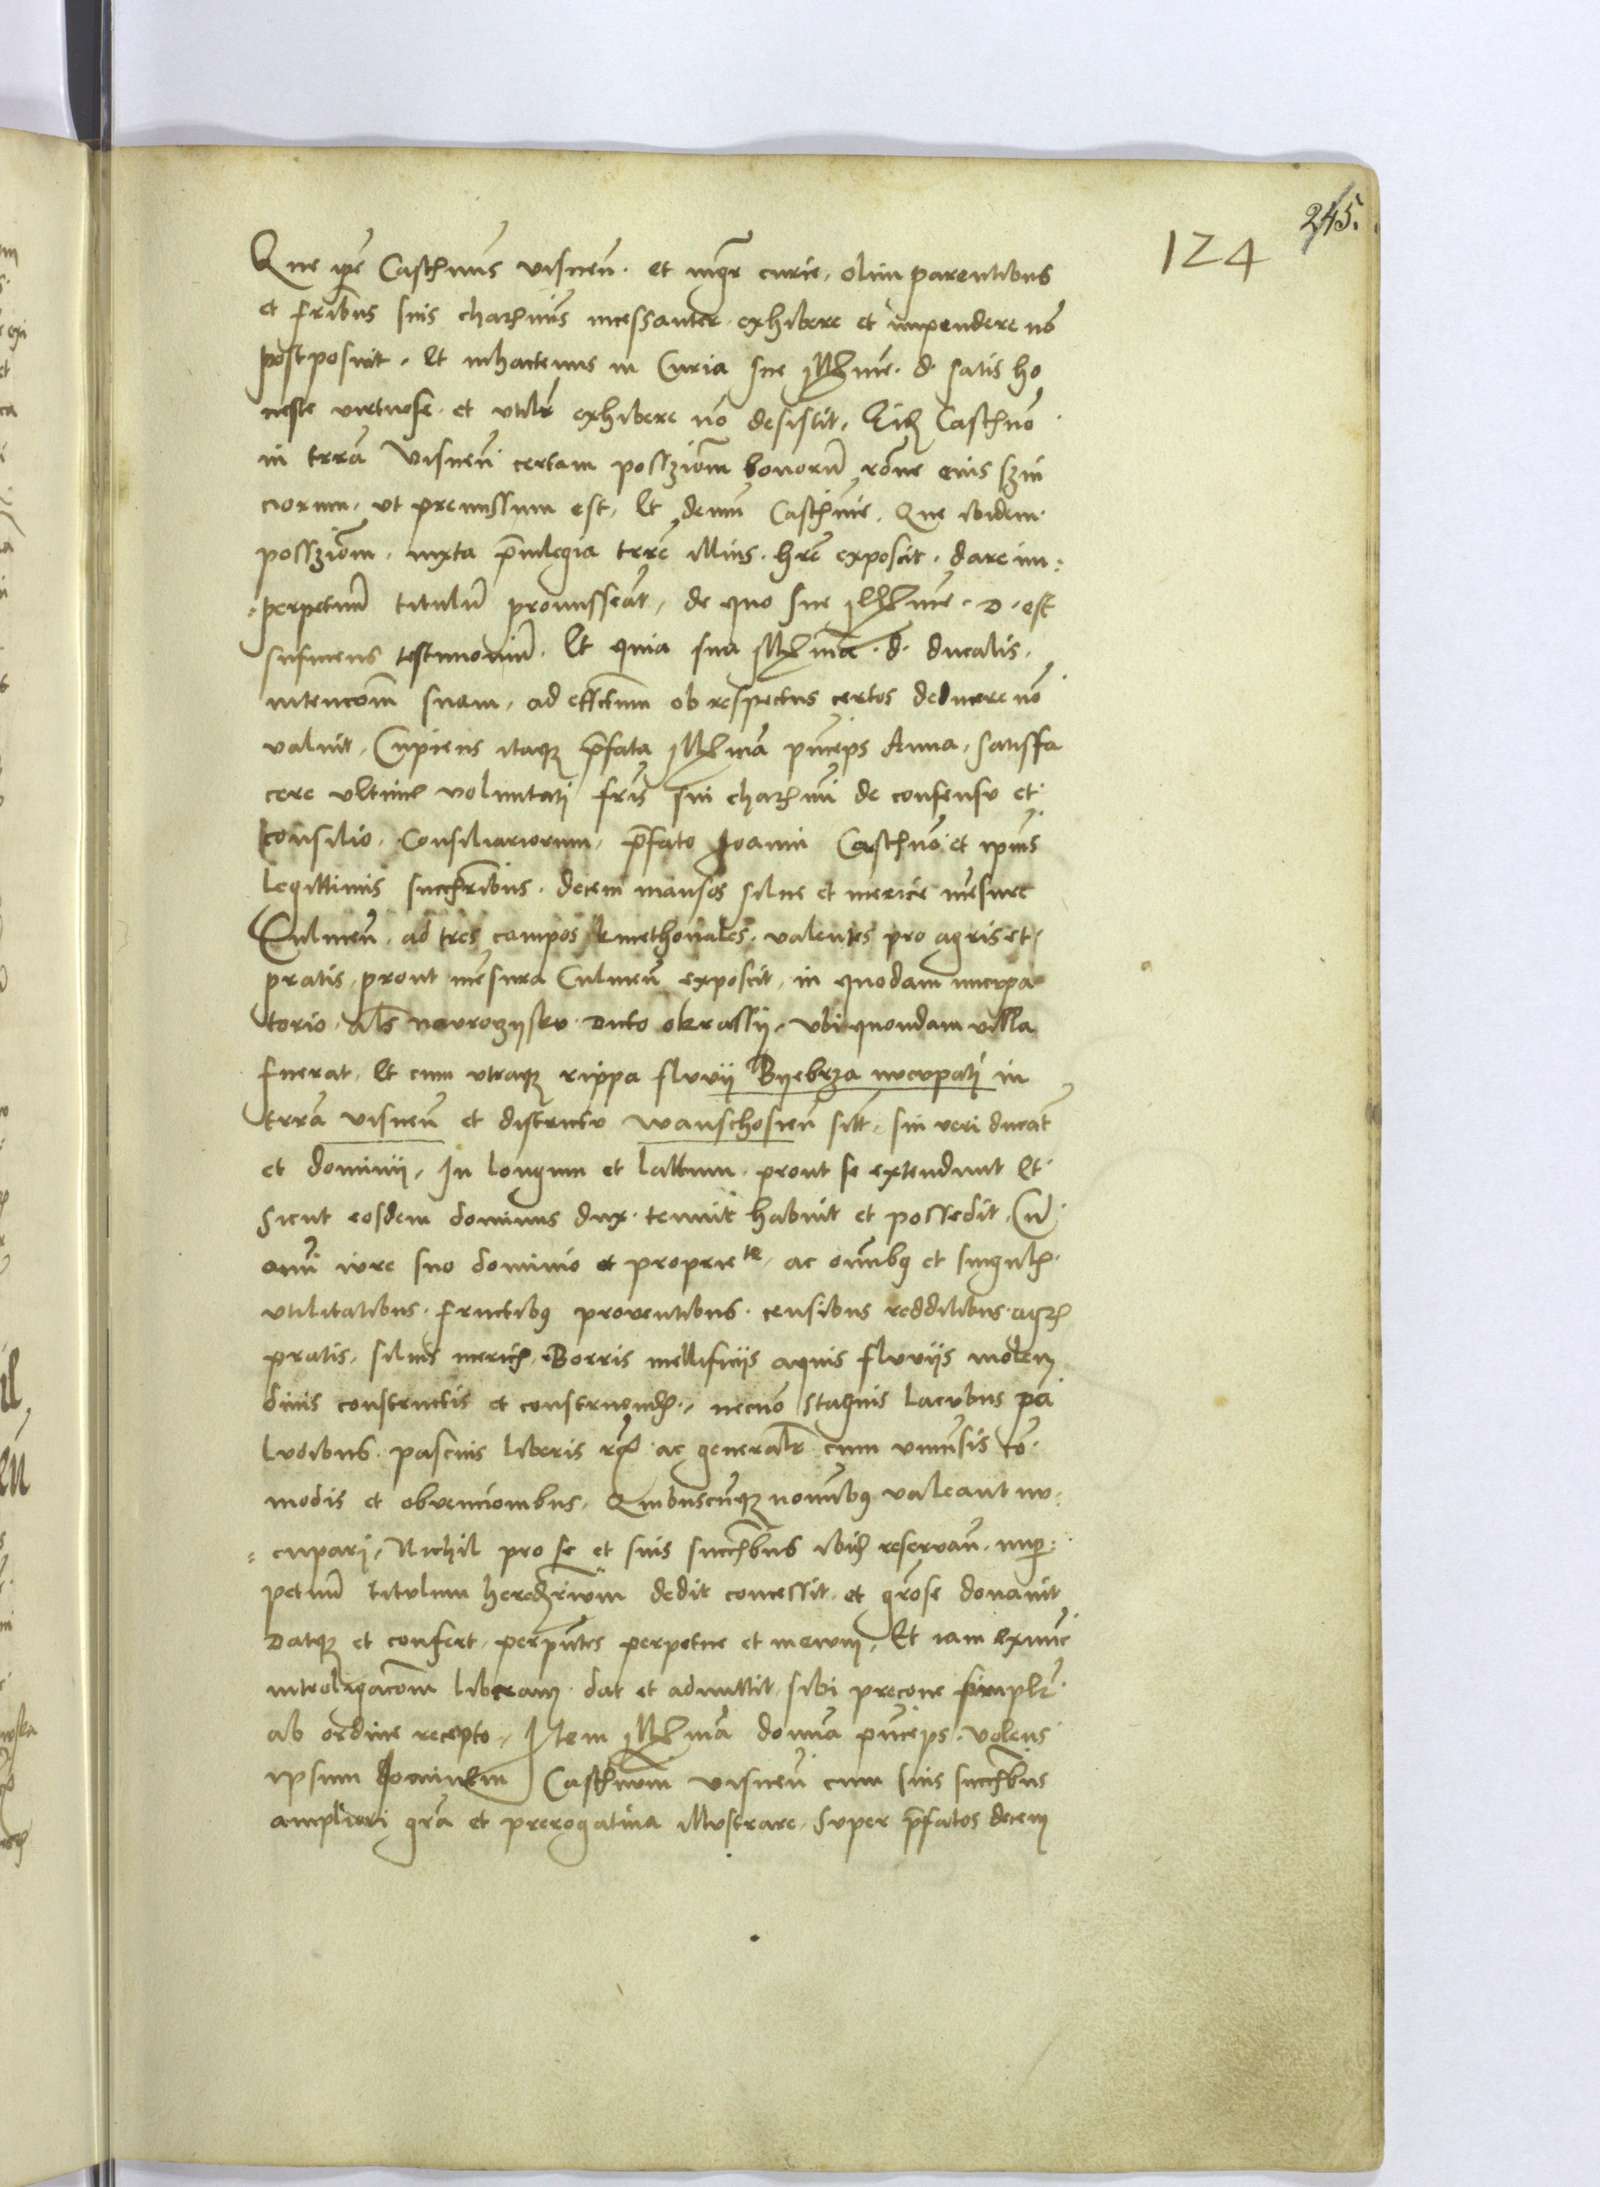 245.
124
Que ipse Casthnus visnen. et mgr curie, olim parentibus
et fribus suis charimis incessanter exhibere et impendere no
postposuit, Et inhactenus in Curia sue Illme. d. satis ho
neste virtuose et utilr exhibere no desistit, Eidem Casthno
in terra Visnen certam possziom bonorum rone eius szui
ciorum, ut premissum est, Et demum Casthnie, Que ibidem
posszionm, iuxta privilegia terre illius hre exposcit, dare im:
:perpetuum titulum promisserat, de quo sue Illme. D. est
suficiens testimonium. Et quia sua Illma. d. ducalis,
intencom suam, ad effctum ob respectus certos deducere no
valuit, Cupiens itaque prefata Illma princeps Anna, satisfa
cere ultime voluntati fris sui charimi de consensu et
consilio, Consiliariorum, prefato Joanni Casthno et ipius
legittimis succribus. decem mansos silue et merice mesure
Culmen, ad tres campos kmethonales, valentes pro agris et
pratis, prout mesura Culmen exposcit, in quodam uncupa
torio als navrozysku Dicto okrassij, ubi quondam villa
fuerat, Et cum utraque rippa fluvij Byebrza nucupati in
terra visnen et districtu wanschosien sitt, sui veri ducat
et dominij, In longum et lattum prout se extendunt Et
Sicut eosdem dominus dux tenuit habuit et possedit, Cum
omi iure suo dominio et proprietate, ac omnibus et singulis
utilitatibus fructibus proventibus censibus redditibus agris
pratis, siluis mericis Borris mellificijs aquis fluvijs molen
dinis constructis et construendis, necno stagnis lacubus pa
ludibus pascuis liberis ac generalr cum univsis co
modis et obvencionibus, Quibuscunque nominibus valeant nu:
:cupari, Nichil pro se et suis succribus ibidem reservan. imper:
petuum titulum hereditarium dedit concessit et grose donavit
Datque et confert perpntes perpetue et in evum, Et iam exnunc
introligacom liberam dat et admittit sibi precone simplr
ab ordine recepto, Item Illma domina princeps volens
ipsum Joannem Casthnum visnen cum suis succribus
ampliori gra et prerogativa illustrare, Super prefatos decem